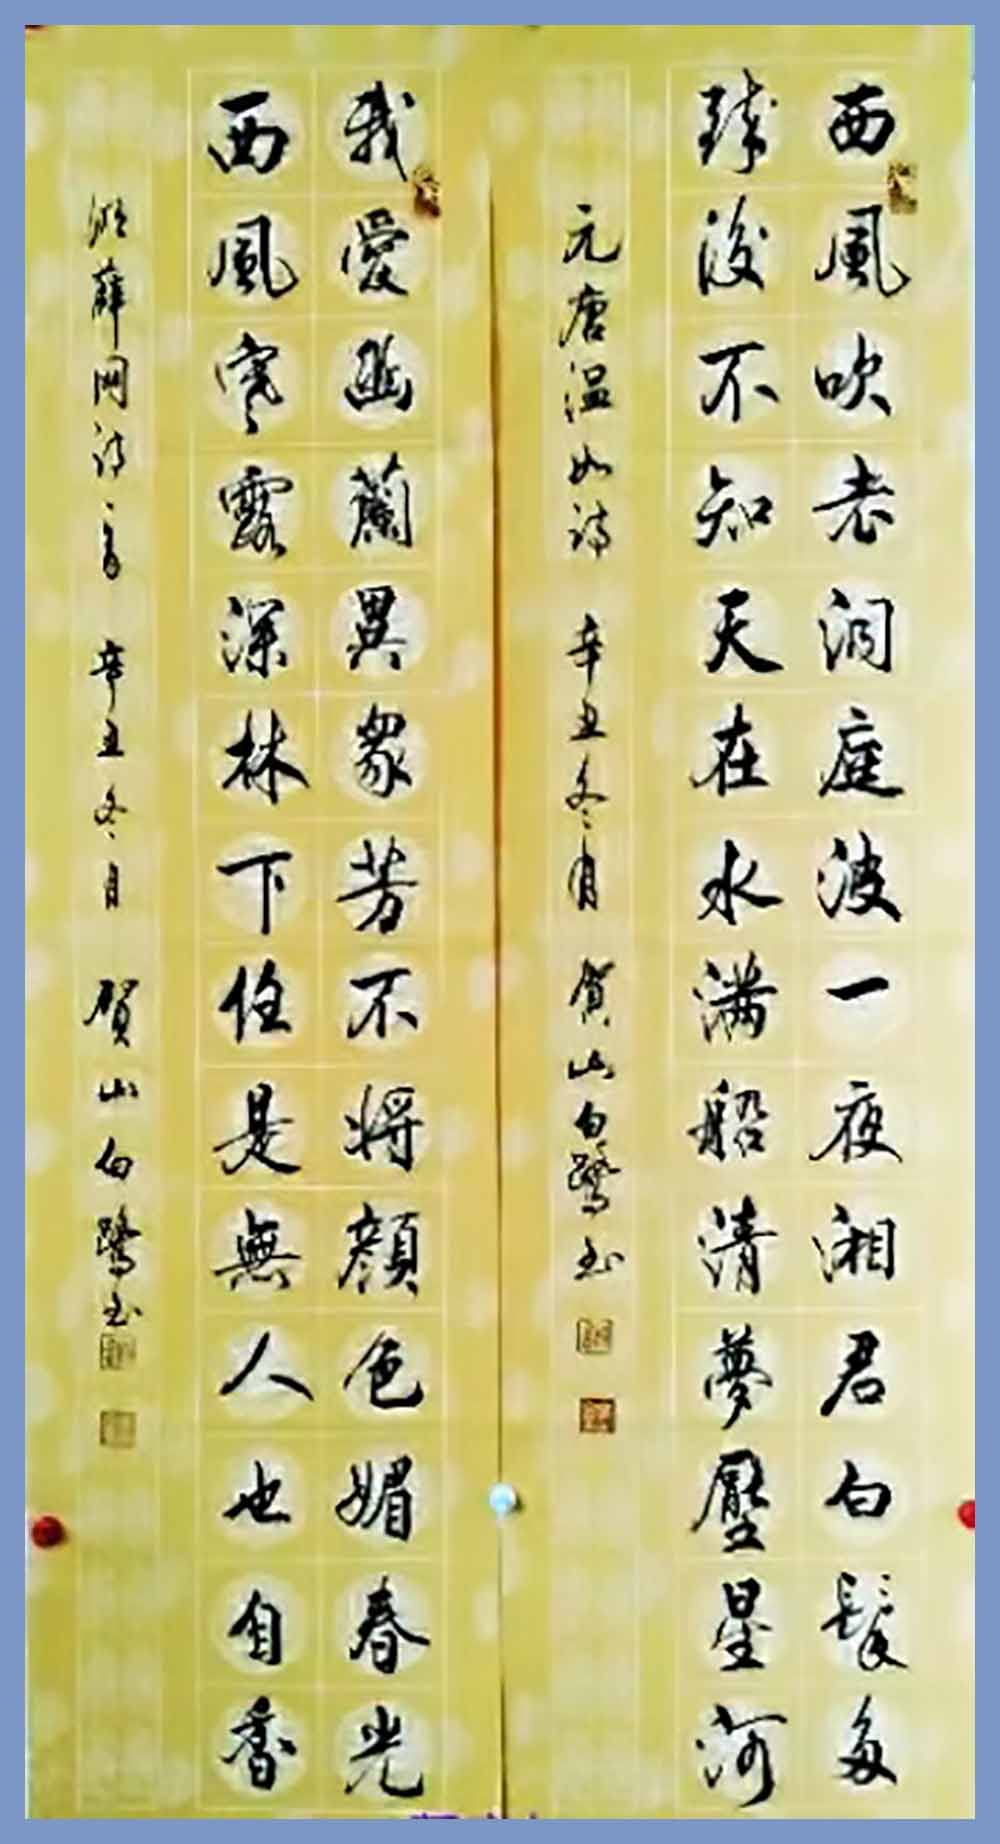 西風吹老洞庭波一夜湘君白髮多
醉後不知天在水满船清夢壓星河
元唐温如詩 辛丑冬月 賀山白鷺书
我愛幽蘭異衆芳不將顏色媚春光
西風寒露深林下任是無人也自香
薛网詩一首 辛丑冬月 賀山白鷺书